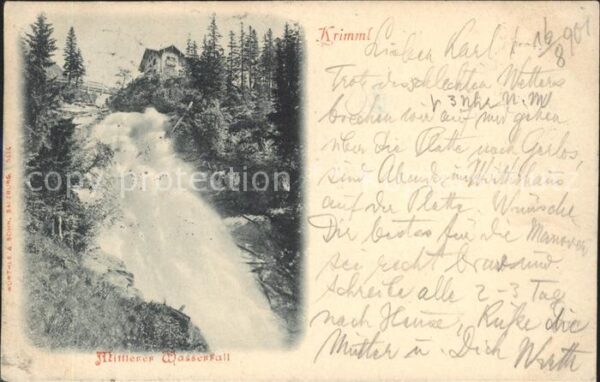 Krimml
Lieber Karl! 1/8 901
Trotz des schlechten Wetters
brachen wir auf und gehen
v 3 Uhr N. M.
über die Platte nach Gerlos,
sind Abends im Wirtshaus
auf der Platte. Wünsche
Dir bestes für die Manöver
sei recht brav und
Schreibe alle 2-3 Tag
nach Hause, Küße die
Mutter u. Dich
copyright protection
WÜRTHLE & SOHN, SALZBURG.
Mittlerer Wasserfall